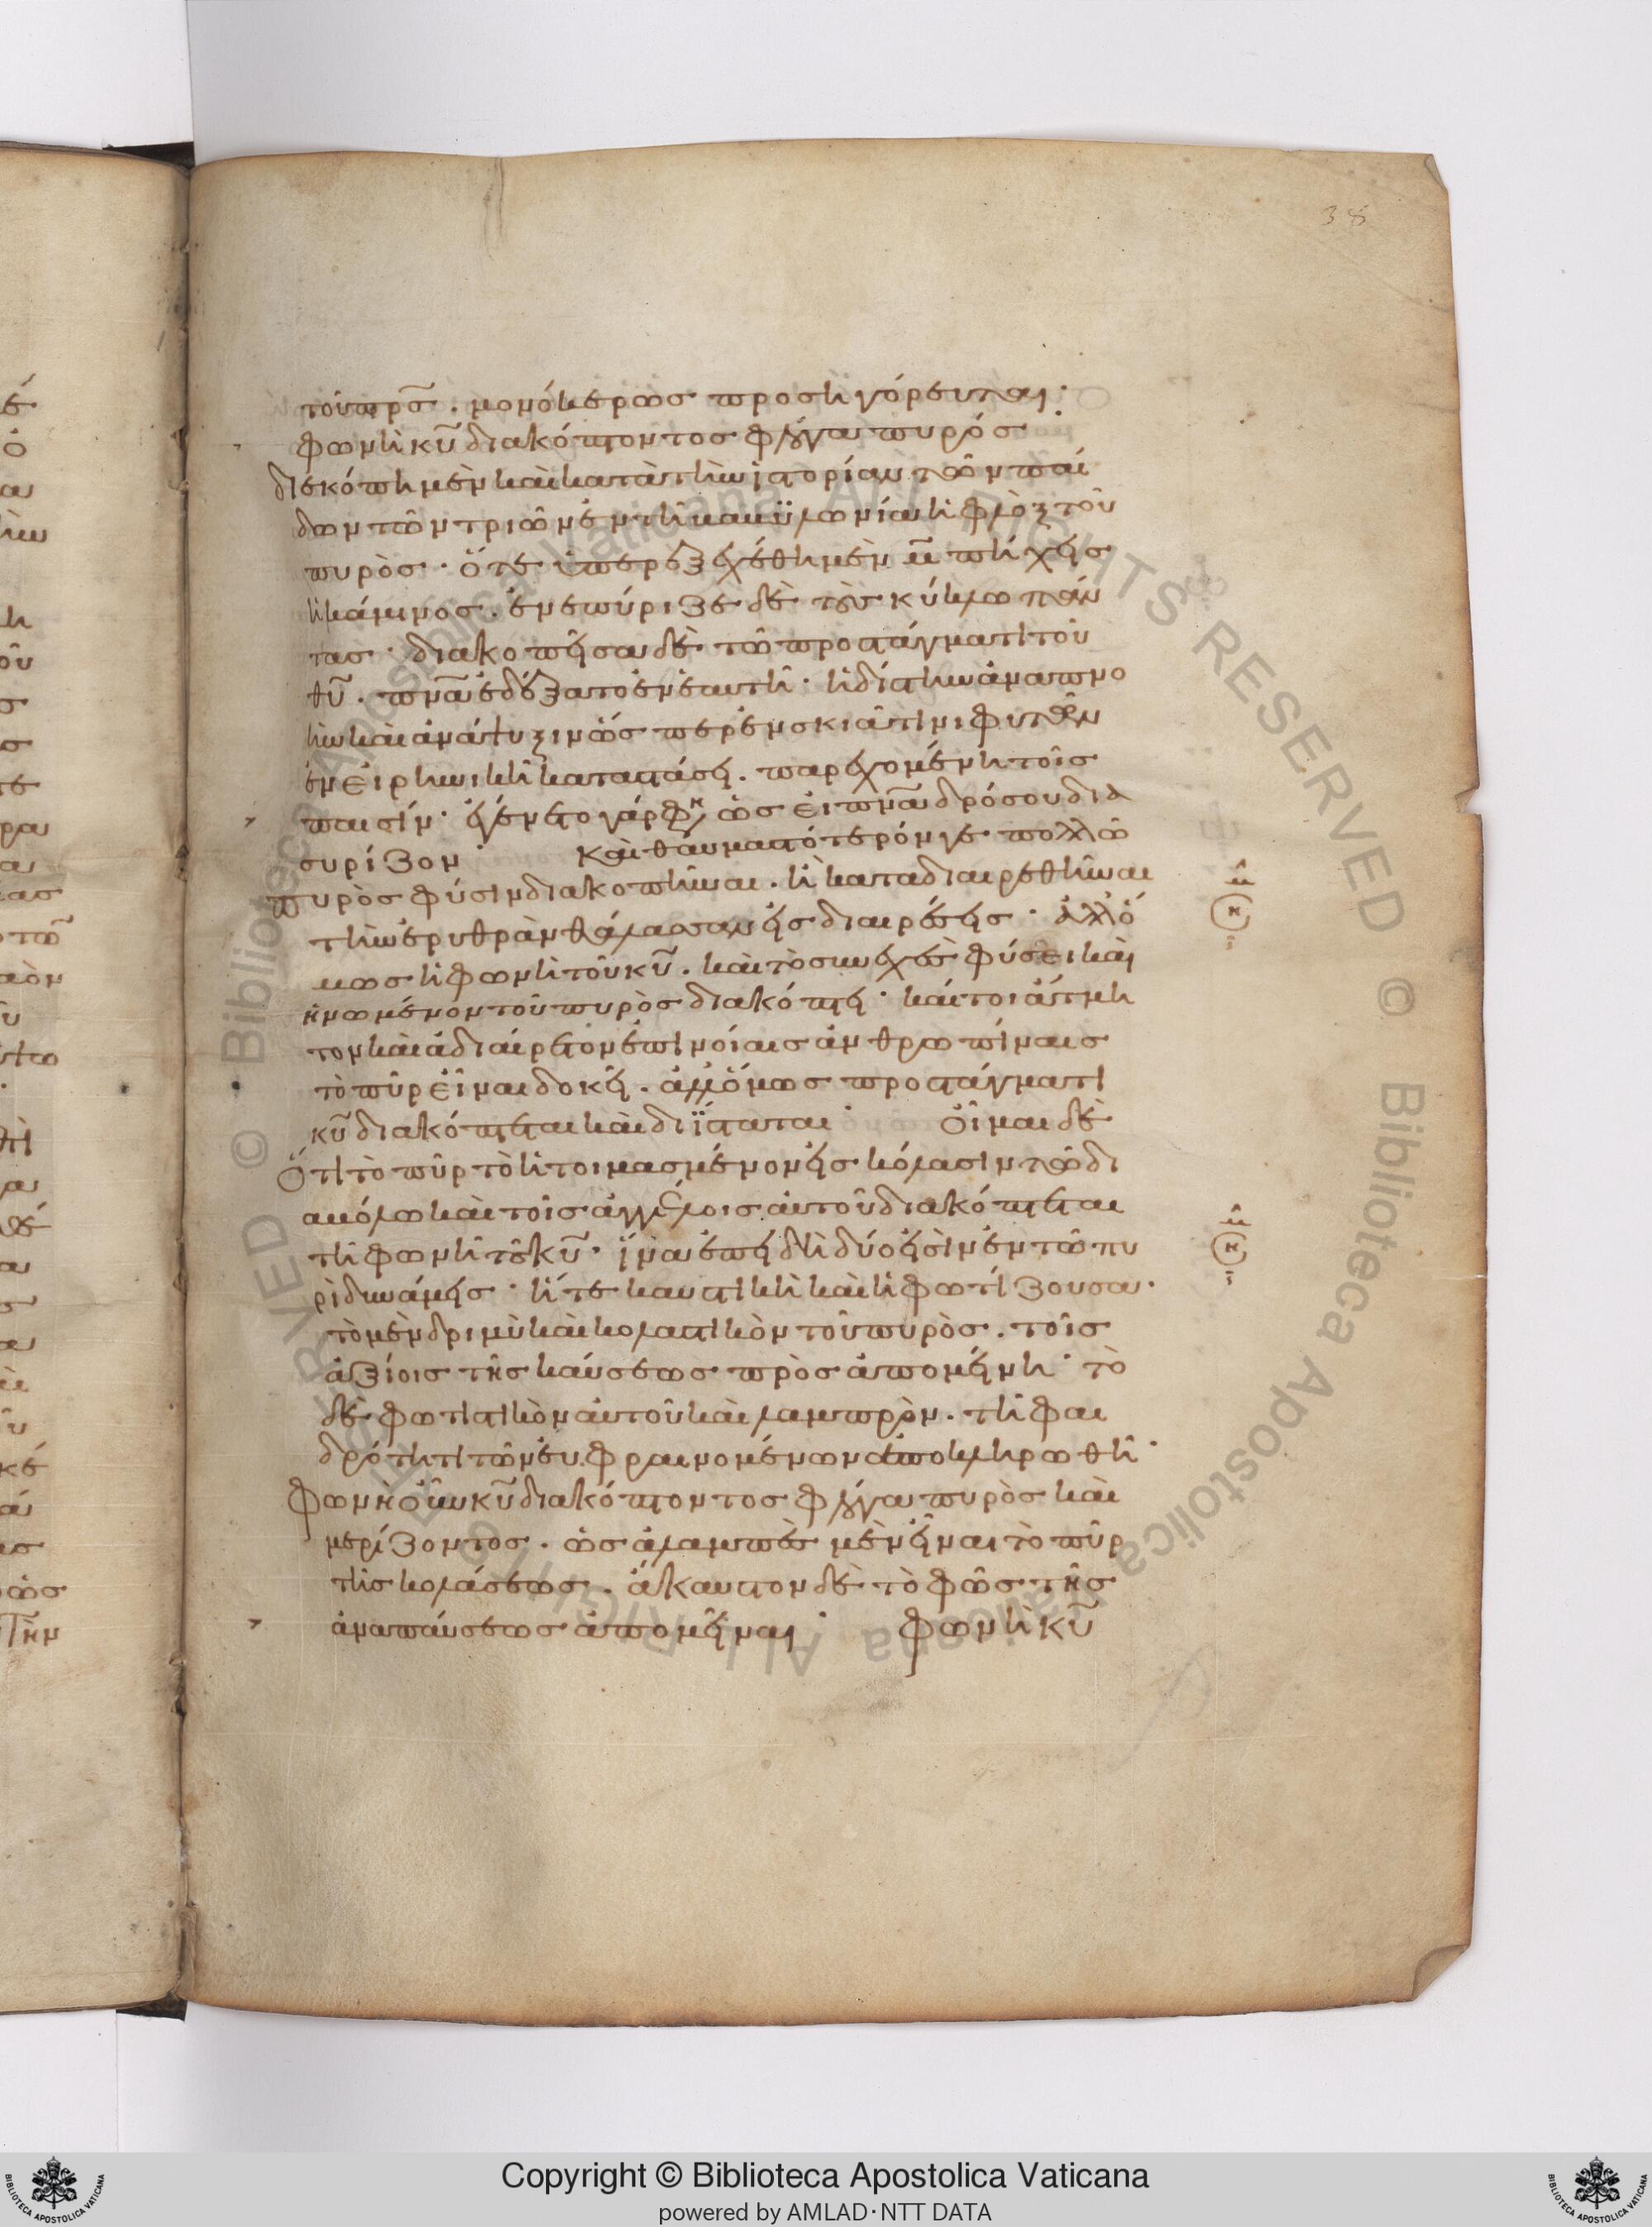 38
τοῦ π̅ρ̅ς̅. μονόκερως προσηγόρευται·
φωνὴ κ̅υ̅ διακόπτοντος φλόγα πυρός·
διεκόπη μὲν καὶ κατὰ τὴν ἱστορίαν τῶν παί
δων τῶν τριῶν ἐν τῆι βαβυλωνίαι ἡ φλὸξ τοῦ
πυρὸς· ὅτε ὑπερεξεχέθη μὲν μ̅θ̅ πήχεις
ἡ κάμινος. ἐνεπύριζε δὲ τοὺς κύκλω πάν
τας· διακοπεῖσα δὲ τῶ προστάγματι τοῦ
θ̅υ̅. π̅ν̅α̅ ἐδέξατο ἐν ἑαυτῆ· ἡδίστην ἀναπνο
ὴν καὶ ἀνάψυξιν ὥσπερ ἐν σκιᾶ τινι φυτῶν
ἐν εἰρηνικῆ καταστάσει. παρεχομένη τοῖς
παισίν· ἐγένετο γάρ φη ὡσεὶ π̅ν̅α̅ δρόσου δια
συρίζον· Καὶ θαυμαστότερόν γε πολλῶ
πυρὸς φύσιν διακοπῆναι. ἢ καταδιαιρεθῆναι
τὴν ἐρυθρὰν θάλασσαν εἰς διαιρέσεις· ἀλλ' ὅ
μως ἡ φωνὴ τοῦ κ̅υ̅. καὶ τὸ συνεχὲς φύσει καὶ
ἡνωμένον τοῦ πυρὸς διακόπτει· καίτοι ἄτμη
τον καὶ ἀδιαίρετον ἐπινοίαις ἀνθρωπίναις
τὸ πῦρ εἶναι δοκεῖ. ἀλλ' ὅμως προστάγματι
κ̅υ̅ διακόπτεται καὶ διΐσταται· Οἶμαι δὲ
ὅτι τὸ πῦρ τὸ ἡτοιμασμένον εἰς κόλασιν τῶ δι
αβόλω καὶ τοῖς ἀγγέλοις αὐτοῦ διακόπτεται
τῆ φωνῆ τοῦ κ̅υ̅· ἵνα ἐπειδὴ δύο εἰσὶν ἐν τῶ πυ
ρὶ δυνάμεις· ἥτε καυστικὴ καὶ ἡ φωτίζουσα·
τὸ μὲν δριμὺ καὶ κολαστικὸν τοῦ πυρὸς. τοῖς
ἀξίοις τῆς καύσεως προσαπομείνη· τὸ
δὲ φωτιστικὸν αὐτοῦ καὶ λαμπρὸν. τῆ φαι
δρότητι τῶν εὐφραινομένων ἀποκληρωθῆ·
φωνὴ οὖν κ̅υ̅ διακόπτοντος φλόγα πυρὸς καὶ
μερίζοντος. ὡς ἀλαμπὲς μὲν εἶναι τὸ πῦρ
τῆς κολάσεως. ἄκαυστον δὲ τὸ φῶς τῆς
ἀναπαύσεως ἀπομεῖναι· φωνὴ κ̅υ̅
Copyright © Biblioteca Apostolica Vaticana
powered by AMLAD·NTT DATA